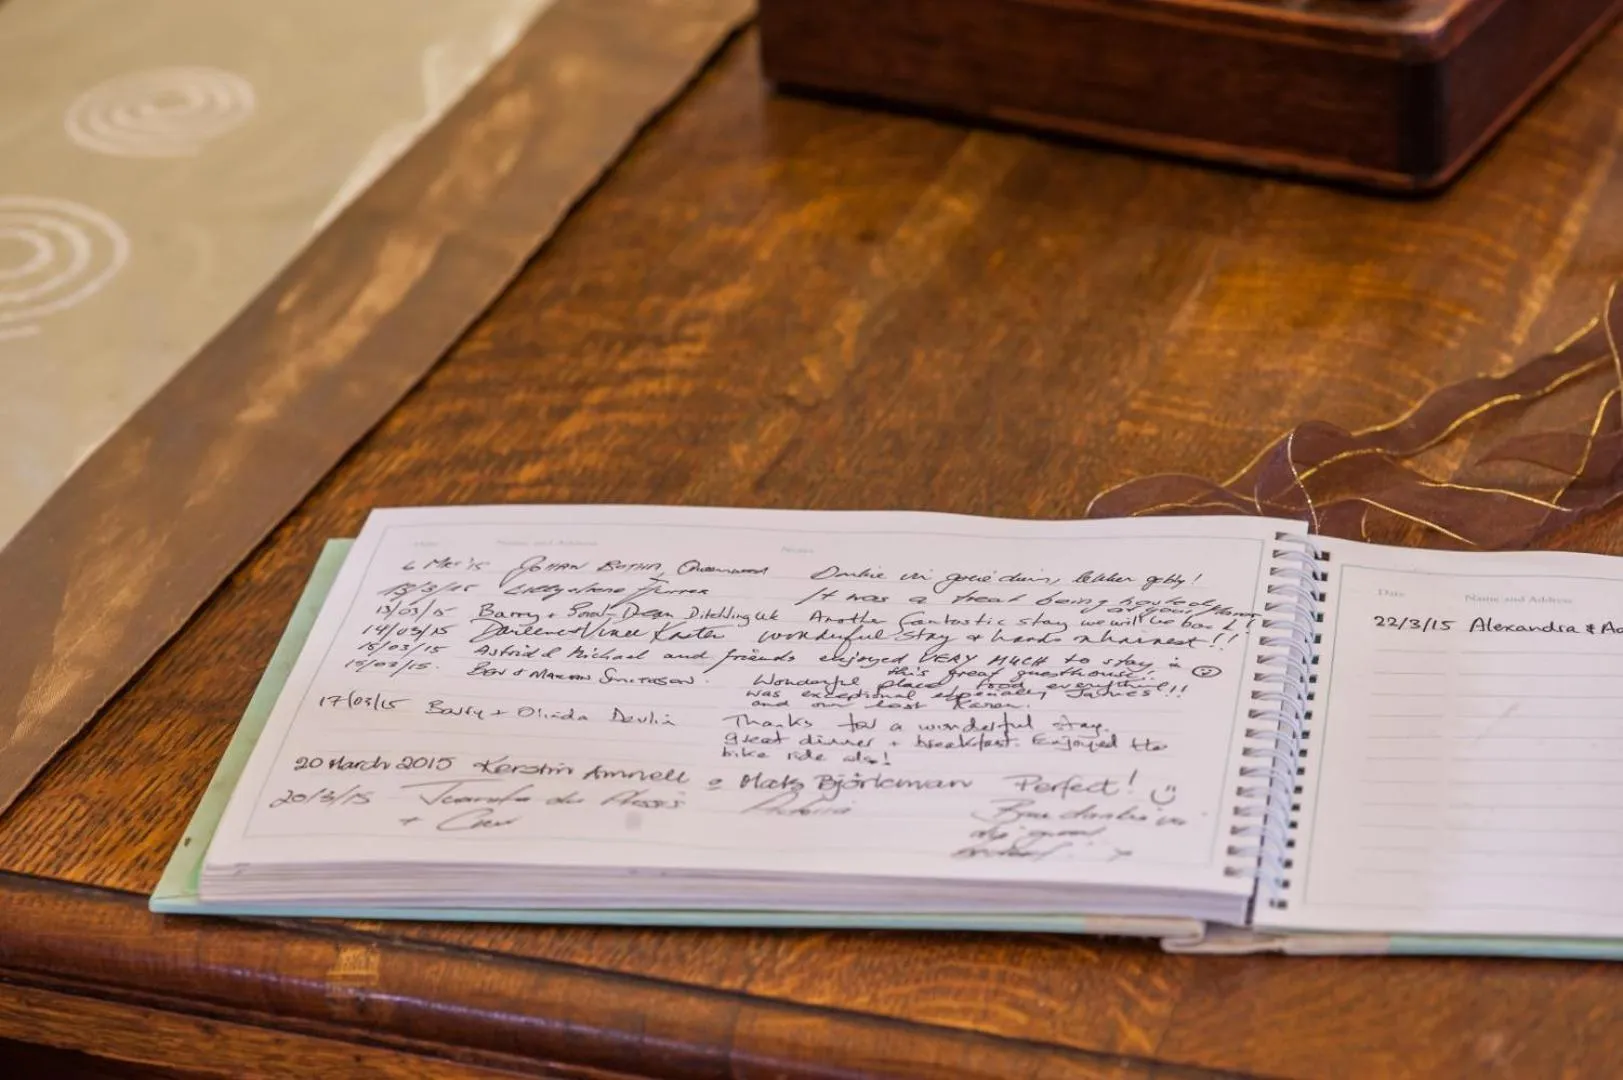 Date Name and Address Notes
6 Mrt '15 JOHAN BOTHA, Dankie vir goeie diens, lekker gebly!
13/3/15 It was a treat being
13/03/15 Barry + Dean Ditchling UK Another fantastic stay we will be back!
14/03/15 Darlene & Vince wonderful stay & thanks !!
15/03/15 Astrid & Michael and friends enjoyed VERY MUCH to stay in
this great guesthouse.
15/03/15. Bev & Wonderful place food everything!!
was exceptional especially James
and our host Karen.
17/03/15 Barry + Olinda Devlin Thanks for a wonderful stay.
great dinner + breakfast. Enjoyed the
bike ride also!
20 March 2015 Kerstin Amnell & Mats Björkman Perfect!
20/3/15 du Plessis Pretoria Baie dankie vir
+
Date Name and Address
22/3/15 Alexandra &